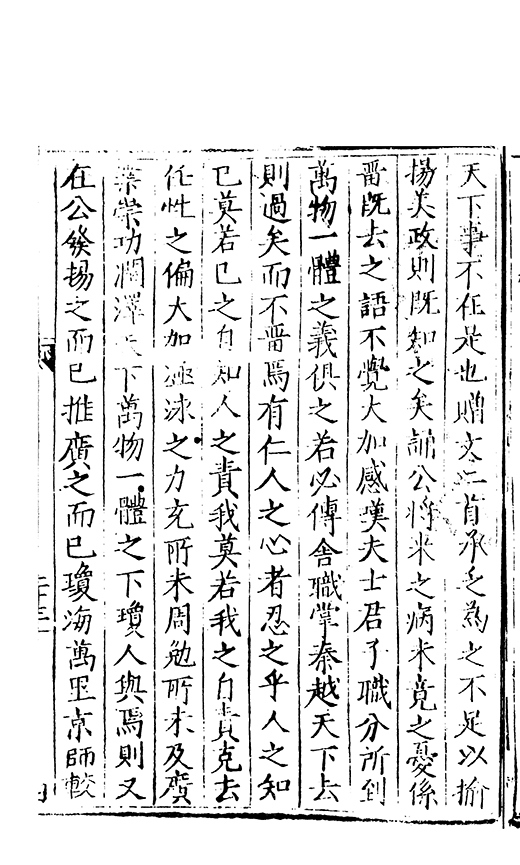 天下事不在是也贈文二首承乏為之不足以揄
揚美政則既知之矣誦公將來之病未竟之憂係
畱既去之語不覺大加感嘆夫士君子職分所到
萬物一體之義俱之若必傳舍職掌秦越天下去
則過矣而不畱焉有仁人之心者忍之乎人之知
己莫若己之自知人之責我莫若我之自責克去
任性之偏大加之力充所未周勉所未及廣
業崇功澤天下萬物一體之下瓊人與焉則又
在公發揚之而已推廣之而已瓊海萬里京師較